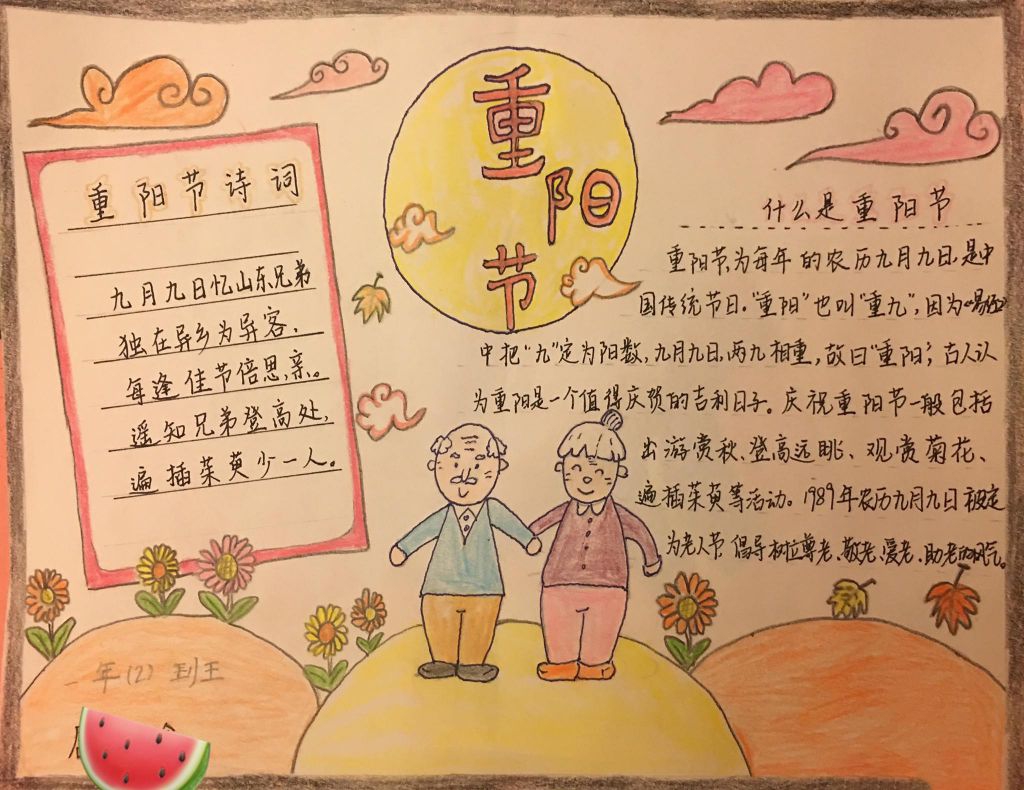 重阳节
重阳节诗词
九月九日忆山东兄弟
独在异乡为异客，
每逢佳节倍思亲。
遥知兄弟登高处，
遍插茱萸少一人。
什么是重阳节
重阳节，为每年的农历九月九日，是中
国传统节日。“重阳”也叫“重九”，因为《易经》
中把“九”定为阳数，九月九日，两九相重，故曰“重阳”；古人认
为重阳是一个值得庆贺的吉利日子。庆祝重阳节一般包括
出游赏秋、登高远眺、观赏菊花、
遍插茱萸等活动。1989年农历九月九日被定
为老人节，倡导树立尊老、敬老、爱老、助老的风气。
一年(2)班